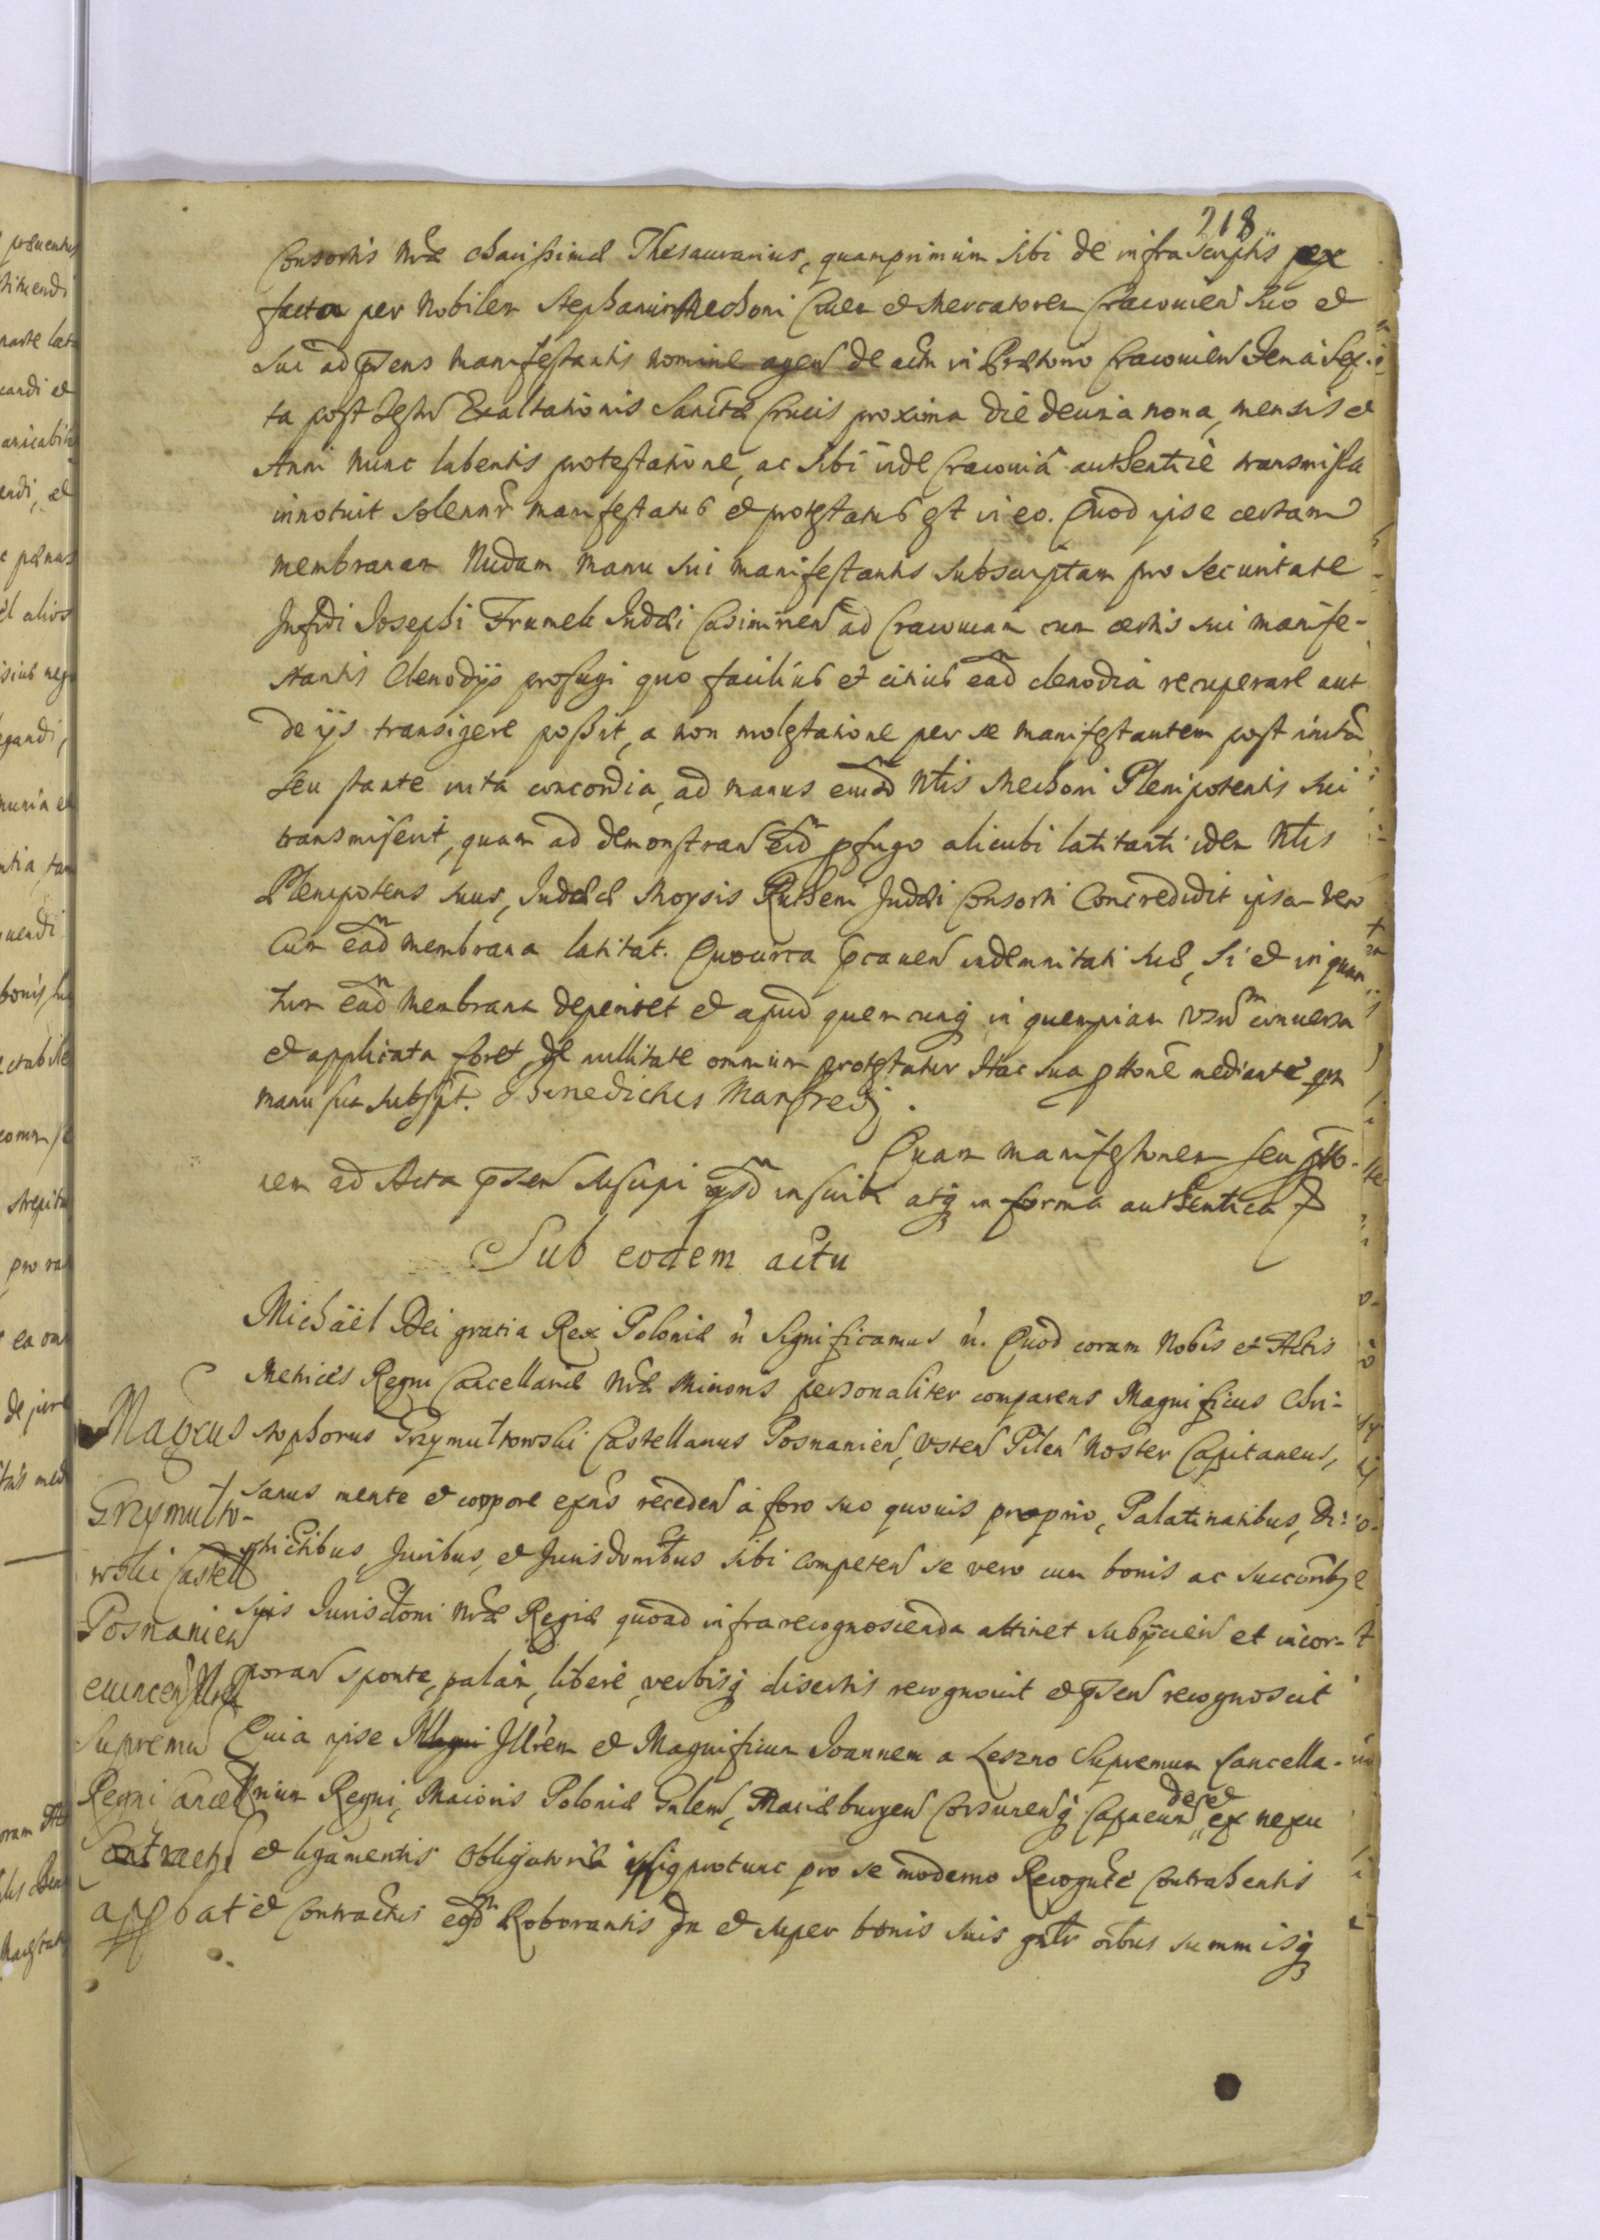 218
Consortis nrae charissimae Thesaurarius, quamprimum sibi de infrascriptis ex
facta per Nobilem Stephanum Mechoni Civem et Mercatorem Cracovien suo et
sui ad psens manifestantis nomine agen de actu in Praetorio Cracovien Feria Sex-
ta post Festu Exaltationis Sanctae Crucis proxima die decima nona, mensis et
Anni nunc labentis protestatione, ac sibi inde Cracoviâ authenticè transmissa
innotuit solennr manifestatus et protestatus est in eo. Quod ipse certam
membranam Nudam manu sui manifestantis subscriptam pro securitate
Infidi Josephi Frumek Judaei Casimirien ad Cracoviam cum certis sui manife-
stantis Clenodijs profugi quo facilius et citius ead clenodia recuperare aut
de ijs transigere possit, a non molestatione per se manifestantem post initã
seu stante inita concordia, ad manus eiusd Nlis Mechoni Plenipotentis sui
transmiserit, quam ad demonstran eid pfugo alicubi latitanti idem Nlis
Plenipotens suus, Judaeae Moysis Rutheni Judaei Consorti Concredidit ipsa vero
cum ead membrana latitat. Quocirca pcaven indemnitati suae, si et in quan
tum ead Membrana deperiret et apud quemcunq in quempiam usu conversa
et applicata foret, de nullitate omnium protestatur Hac sua pttone mediante qm
manu sua subspt. Benedictus Manfredj.
Quam manifestonem seu ptto-
nem ad Acta psen suscipi insuita atq in forma authentica
Sub eodem actu
Michäel Dei gratia Rex Poloniae ñ Significamus ñ. Quod coram Nobis et Actis
Metrices Regni Cancellariae nrae Minoris personaliter comparens Magnificus Chri-
stophorus Grzymułtowski Castellanus Posnanien, Usten Pilen Noster Capitaneus,
sanus mente et corpore exns receden à foro suo quovis proprio, Palatinatibus, Di-
strictibus, Juribus, et Jurisdonibus sibi competen se vero cum bonis ac succoribq
suis Jurisdctoni nrae Regiae quoad infrarecognoscenda attinet subijcien et incor-
poran sponte, palàm, liberè, verbisq disertis recognovit et psen recognoscit
Quia ipse Illrem et Magnificum Joannem a Leszno Supremum Cancella-
rium Regni, Maioris Poloniae Gnlem, Mariaeburgen Corsunenq Capneum, de et ex nexu
et ligamentis obligatoriae protunc pro se moderno Recognte contrahentis
et contractus eosd Roborantis in et super bonis suis gnlr oibus summisq
Magcus
Grzymułto-
wski Castell
Posnanien
evincen Illrem
Supremu
Regni Cancell
Contractus
appbat